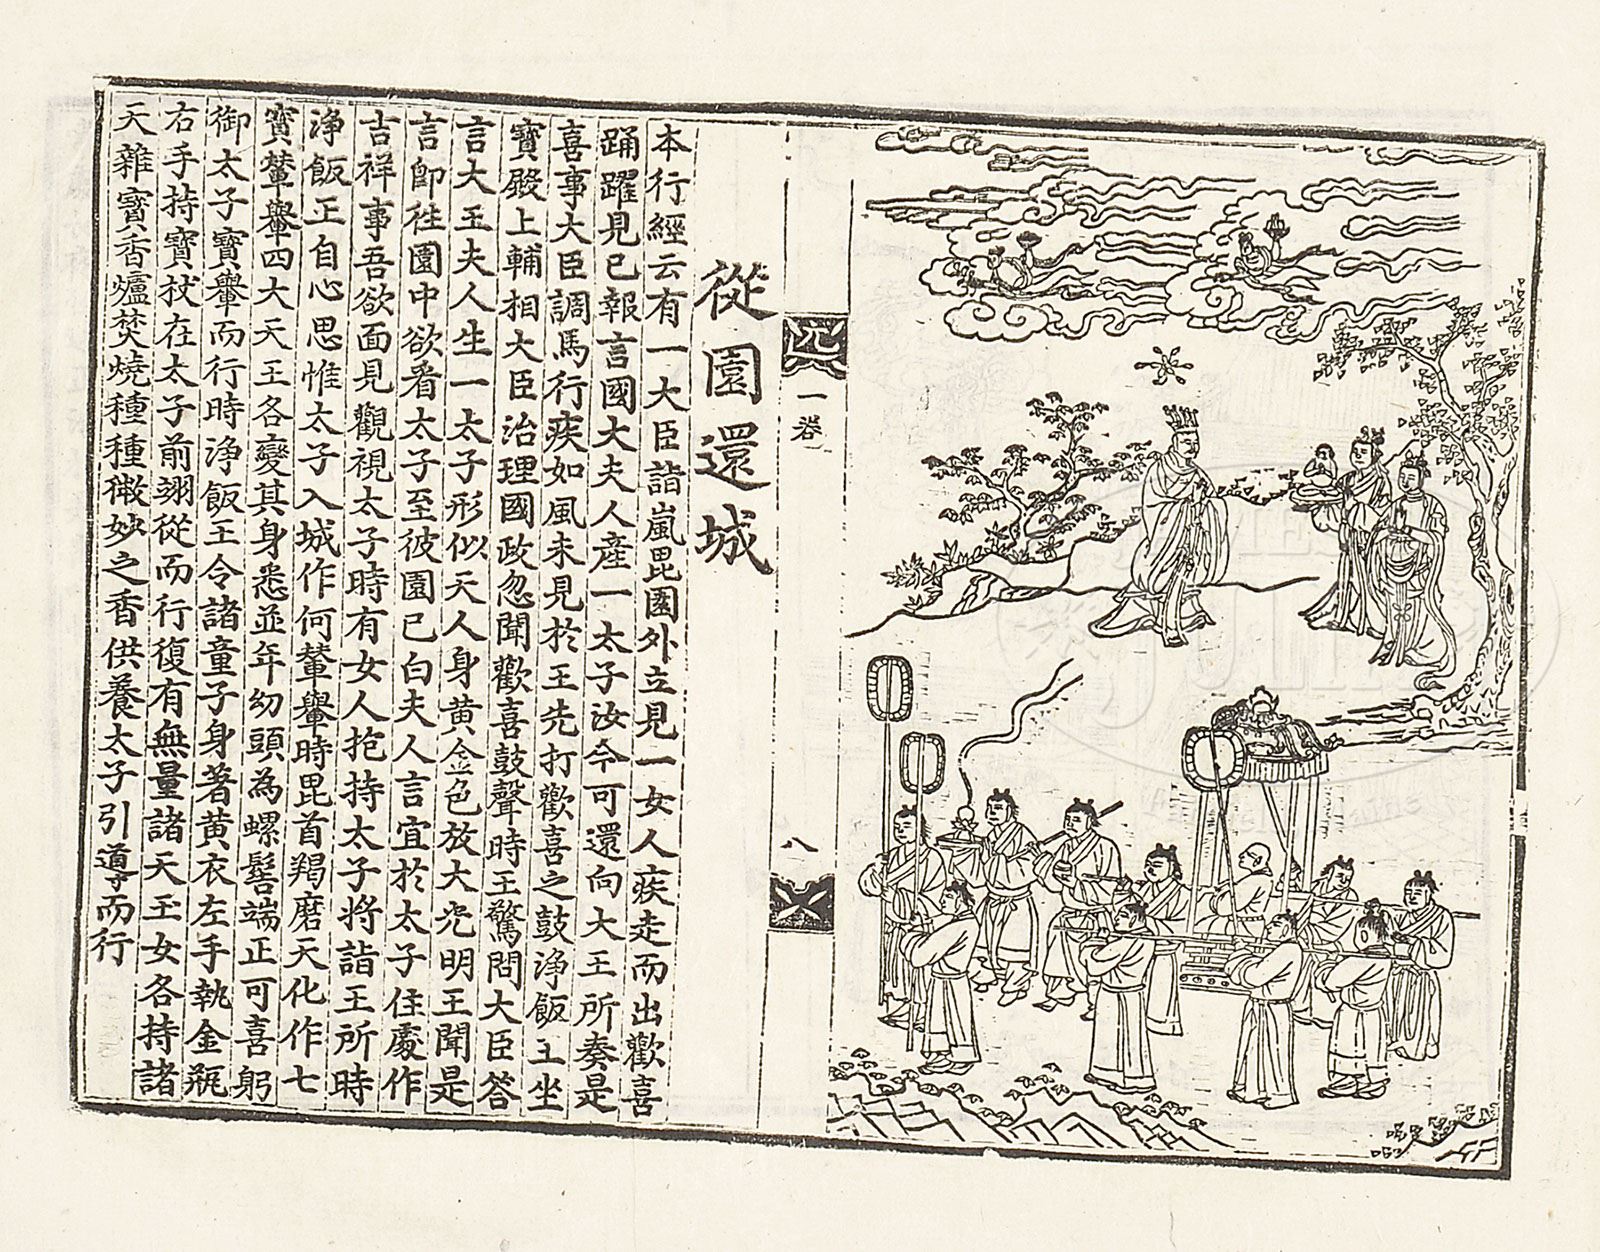 從園還城
本行經云有一大臣詣嵐毘園外立見一女人疾走而出歡喜
踊躍見已報言國大夫人產一太子汝今可還向大王所奏是
喜事大臣調馬行疾如風未見於王先打歡喜之鼓淨飯王坐
寶殿上輔相大臣治理國政忽聞歡喜鼓聲時王驚問大臣答
言大王夫人生一太子形似天人身黃金色放大光明王聞是
言即徃園中欲看太子至彼園已白夫人言宜於太子住處作
吉祥事吾欲面見觀視太子時有女人抱持太子將詣王所時
淨飯王自心思惟太子入城作何輦轝時毘首羯磨天化作七
寶輦轝四大天王各變其身悉並年幼頭為螺髻端正可喜躬
御太子寶轝而行時淨飯王令諸童子身著黃衣左手執金瓶
右手持寶杖在太子前翊從而行復有無量諸天玉女各持諸
天雜寶香爐焚燒種種微妙之香供養太子引導而行
一卷
八